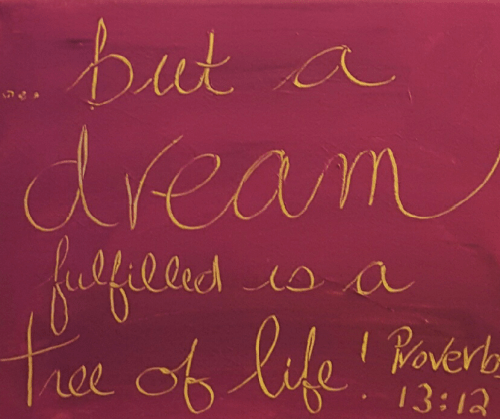 ... but a
dream
fulfilled is a
tree of life!
Proverbs
13:12